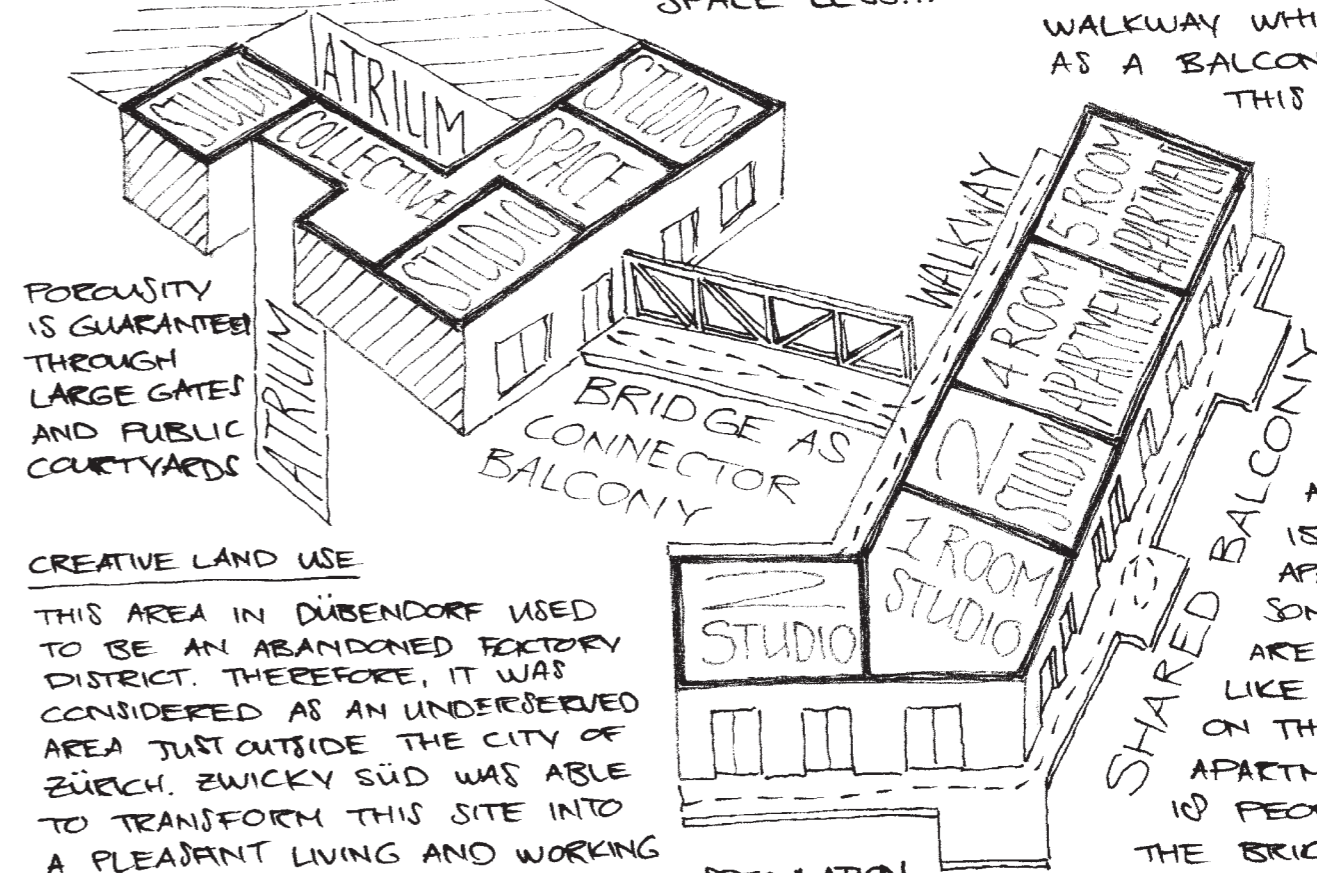 SPACE LESS...
WALKWAY
AS A
THIS
STUDIO
ATRIUM
COLLECTIVE
SPACE
STUDIO
STUDIO
ATRIUM
POROUSITY
IS GUARANTEED
THROUGH
LARGE GATES
AND PUBLIC
COURTYARDS
BRIDGE AS
CONNECTOR
BALCONY
WALKWAY
5 ROOM
APARTMENT
4 ROOM
APARTMENT
STUDIO
1 ROOM
STUDIO
2
STUDIO
SHARED BALCONY
CREATIVE LAND USE
THIS AREA IN DÜBENDORF USED
TO BE AN ABANDONED FACTORY
DISTRICT. THEREFORE, IT WAS
CONSIDERED AS AN UNDERSERVED
AREA JUST OUTSIDE THE CITY OF
ZÜRICH. ZWICKY SÜD WAS ABLE
TO TRANSFORM THIS SITE INTO
A PLEASANT LIVING AND WORKING
ARE
LIKE
ON
IS
THE